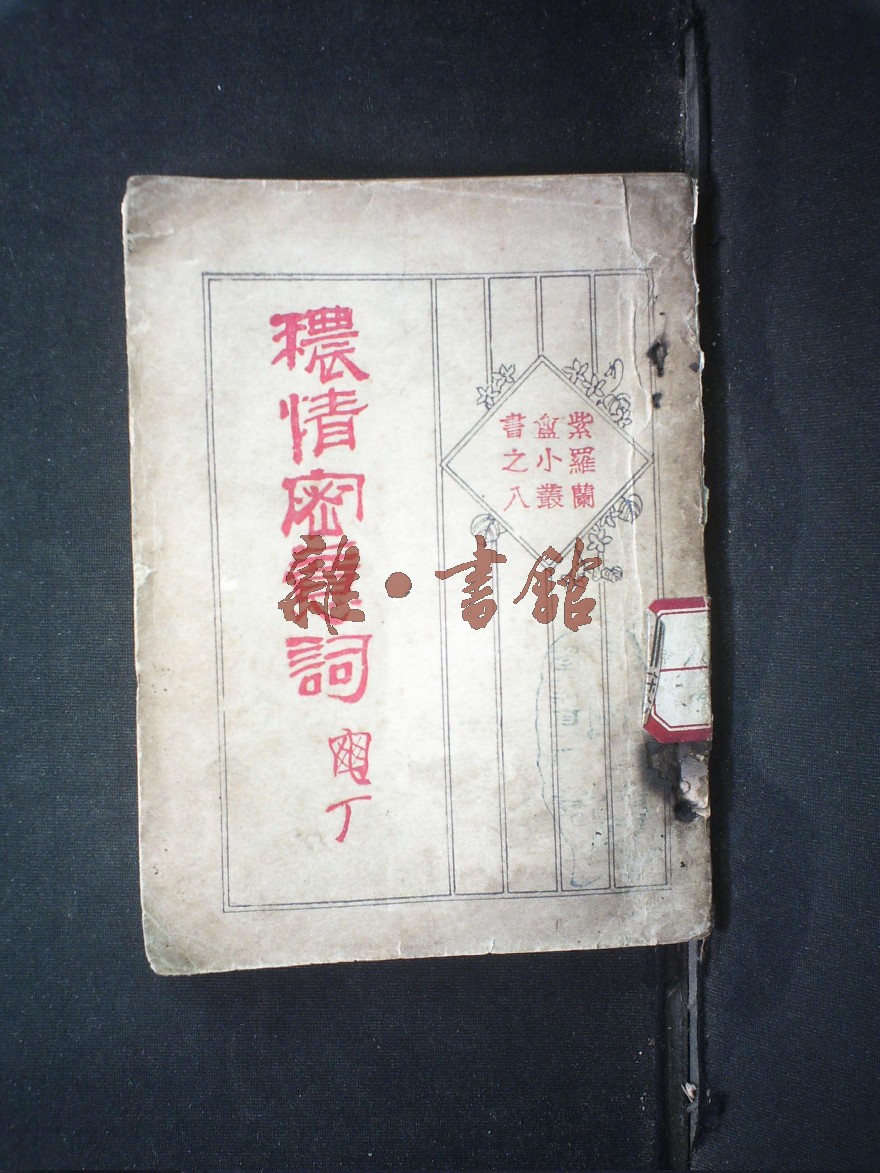 紫羅蘭
盦小叢
書之八
穠情密詞
丁
雜·書館